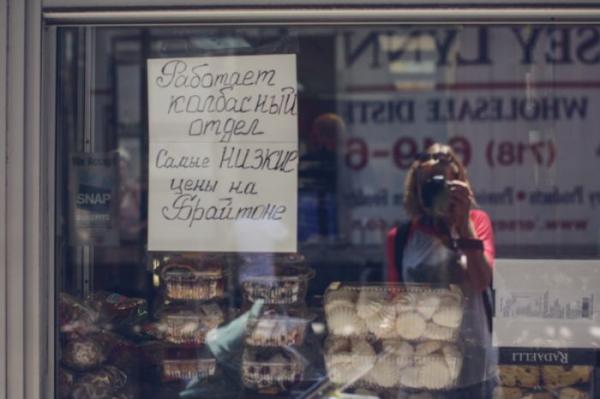 Работает
колбасный
отдел
Самые НИЗКИЕ
цены на
Брайтоне
We Accept
SNAP
SEY LYNN
WHOLESALE DISTRI
(718) 649-6
RADAELLI